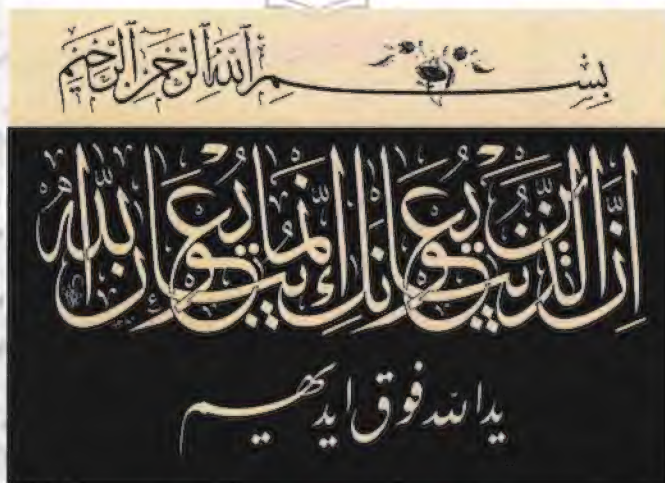 بِسْمِ ٱللَّهِ ٱلرَّحْمَٰنِ ٱلرَّحِيمِ
إِنَّ الَّذِينَ يُبَايِعُونَكَ إِنَّمَا يُبَايِعُونَ اللَّهَ
ید الله فوق ایدیهم